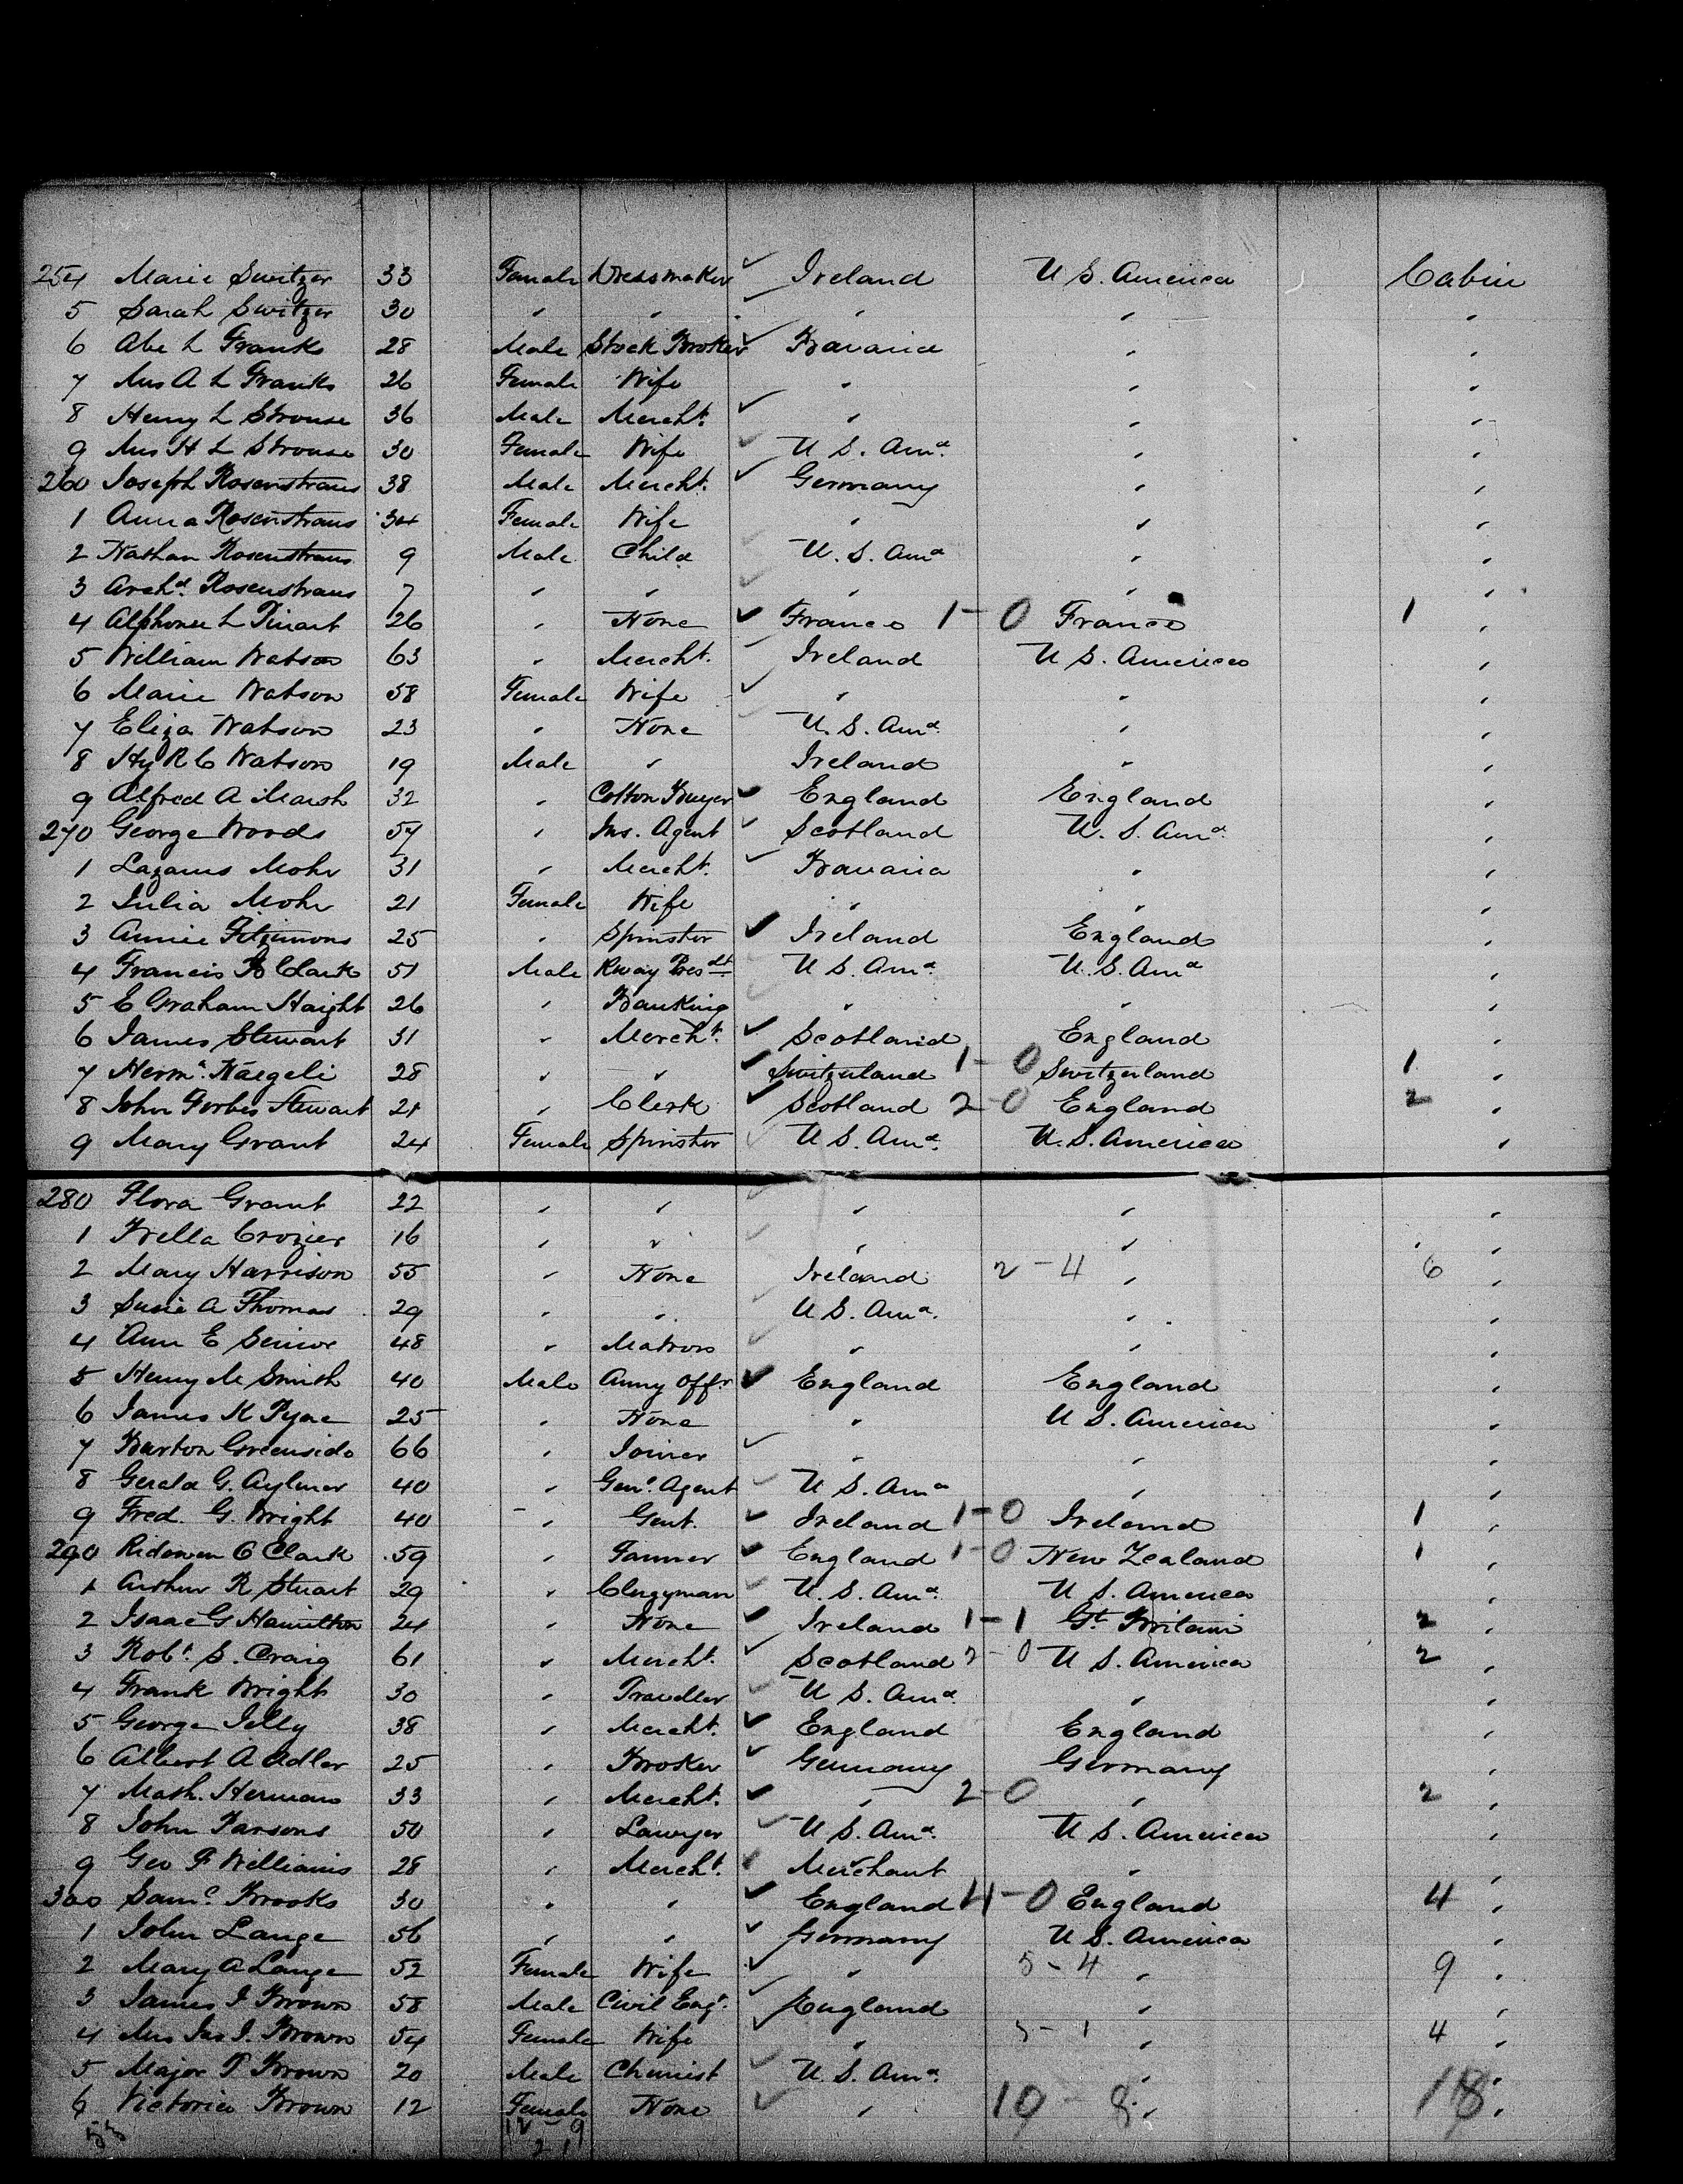 254 Marie Switzer 33 Female Dressmaker ✓ Ireland U S. America Cabin
5 Sarah Switzer 30 " " ✓ " " "
6 Abe L Franks 28 Male Stock Broker ✓ Bavaria " "
7 Mrs A L Franks 26 Female Wife " " "
8 Henry L Strouse 36 Male Mercht. ✓ " " "
9 Mrs H L Strouse 30 Female Wife ✓ U S. Ama. " "
260 Joseph Rosenstraus 38 Male Mercht. ✓ Germany " "
1 Anna Rosenstraus 34 Female Wife " " "
2 Nathan Rosenstraus 9 Male Child ✓ U. S. Ama " "
3 Archd. Rosenstraus 7 " " ✓ " " "
4 Alphonse L Pinart 26 " None ✓ France 1-0 France 1 "
5 William Watson 63 " Mercht. ✓ Ireland U S. America "
6 Marie Watson 58 Female Wife ✓ " " "
7 Eliza Watson 23 " None ✓ U. S. Ama. " "
8 Hy R C Watson 19 Male " Ireland " "
9 Alfred A Marsh 32 " Cotton Buyer ✓ England England "
270 George Woods 57 " Ins. Agent ✓ Scotland U. S. Ama. "
1 Lazarus Mohr 31 " Mercht. ✓ Bavaria " "
2 Julia Mohr 21 Female Wife " " "
3 Annie Fitzimons 25 " Spinster ✓ Ireland England "
4 Francis B Clark 51 Male Rway Presdt ✓ U S. Ama. U. S. Ama "
5 E Graham Haight 26 " Banking ✓ " " "
6 James Stewart 31 " Mercht. ✓ Scotland England "
7 Hermn. Naegeli 28 " " ✓ Switzerland 1-0 Switzerland 1 "
8 John Forbes Stewart 21 " Clerk ✓ Scotland 2-0 England 2 "
9 Mary Grant 24 Female Spinster ✓ U S. Ama. U. S. America "
280 Flora Grant 22 " " ✓ " " "
1 Brella Crozier 16 " " ✓ " " "
2 Mary Harrison 55 " None Ireland 2-4 " 6 "
3 Susie A Thomas 29 " " ✓ U S. Ama. " "
4 Ann E Senior 48 " Matron ✓ " " "
5 Henry M Smith 40 Male Army Offr. ✓ England England "
6 James K Pyne 25 " None " U S. America "
7 Barton Greenside 66 " Joiner ✓ " " "
8 Gerald G. Aylmer 40 " Genl. Agent ✓ U S. Ama " "
9 Fred. G. Wright 40 " Gent. ✓ Ireland 1-0 Ireland 1 "
290 C Clark 59 " Farmer ✓ England 1-0 New Zealand 1 "
1 Arthur R Stuart 29 " Clergyman ✓ U. S. Ama. U S. America "
2 Isaac G Hamilton 24 " None ✓ Ireland 1-1 Gt. Britain 2 "
3 Robt. S. Craig 61 " Mercht. ✓ Scotland 2-0 U S. America 2 "
4 Frank Wright 30 " Traveller ✓ U S. Ama. " "
5 George Jelly 38 " Mercht. ✓ England England "
6 Albert A Adler 25 " Broker ✓ Germany Germany "
7 Math. Herman 33 " Mercht. ✓ " 2-0 " 2 "
8 John Parsons 50 " Lawyer ✓ U S. Ama. U S. America "
9 Geo F Williams 28 " Mercht. ✓ Merchant " "
300 Saml. Brooks 30 " " ✓ England 4-0 England 4 "
1 John Lange 56 " " ✓ Germany U S. America "
2 Mary A Lange 52 Female Wife ✓ " 5-4 " 9 "
3 James J Brown 58 Male Civil Engr. ✓ England " "
4 Mrs Jas J. Brown 54 Female Wife ✓ " 3-1 " 4 "
5 Major T Brown 20 Male Chemist ✓ U. S. Ama. " "
6 Victoria Brown 12 Female None ✓ " 10-8 " 18 "
53 12 9
21